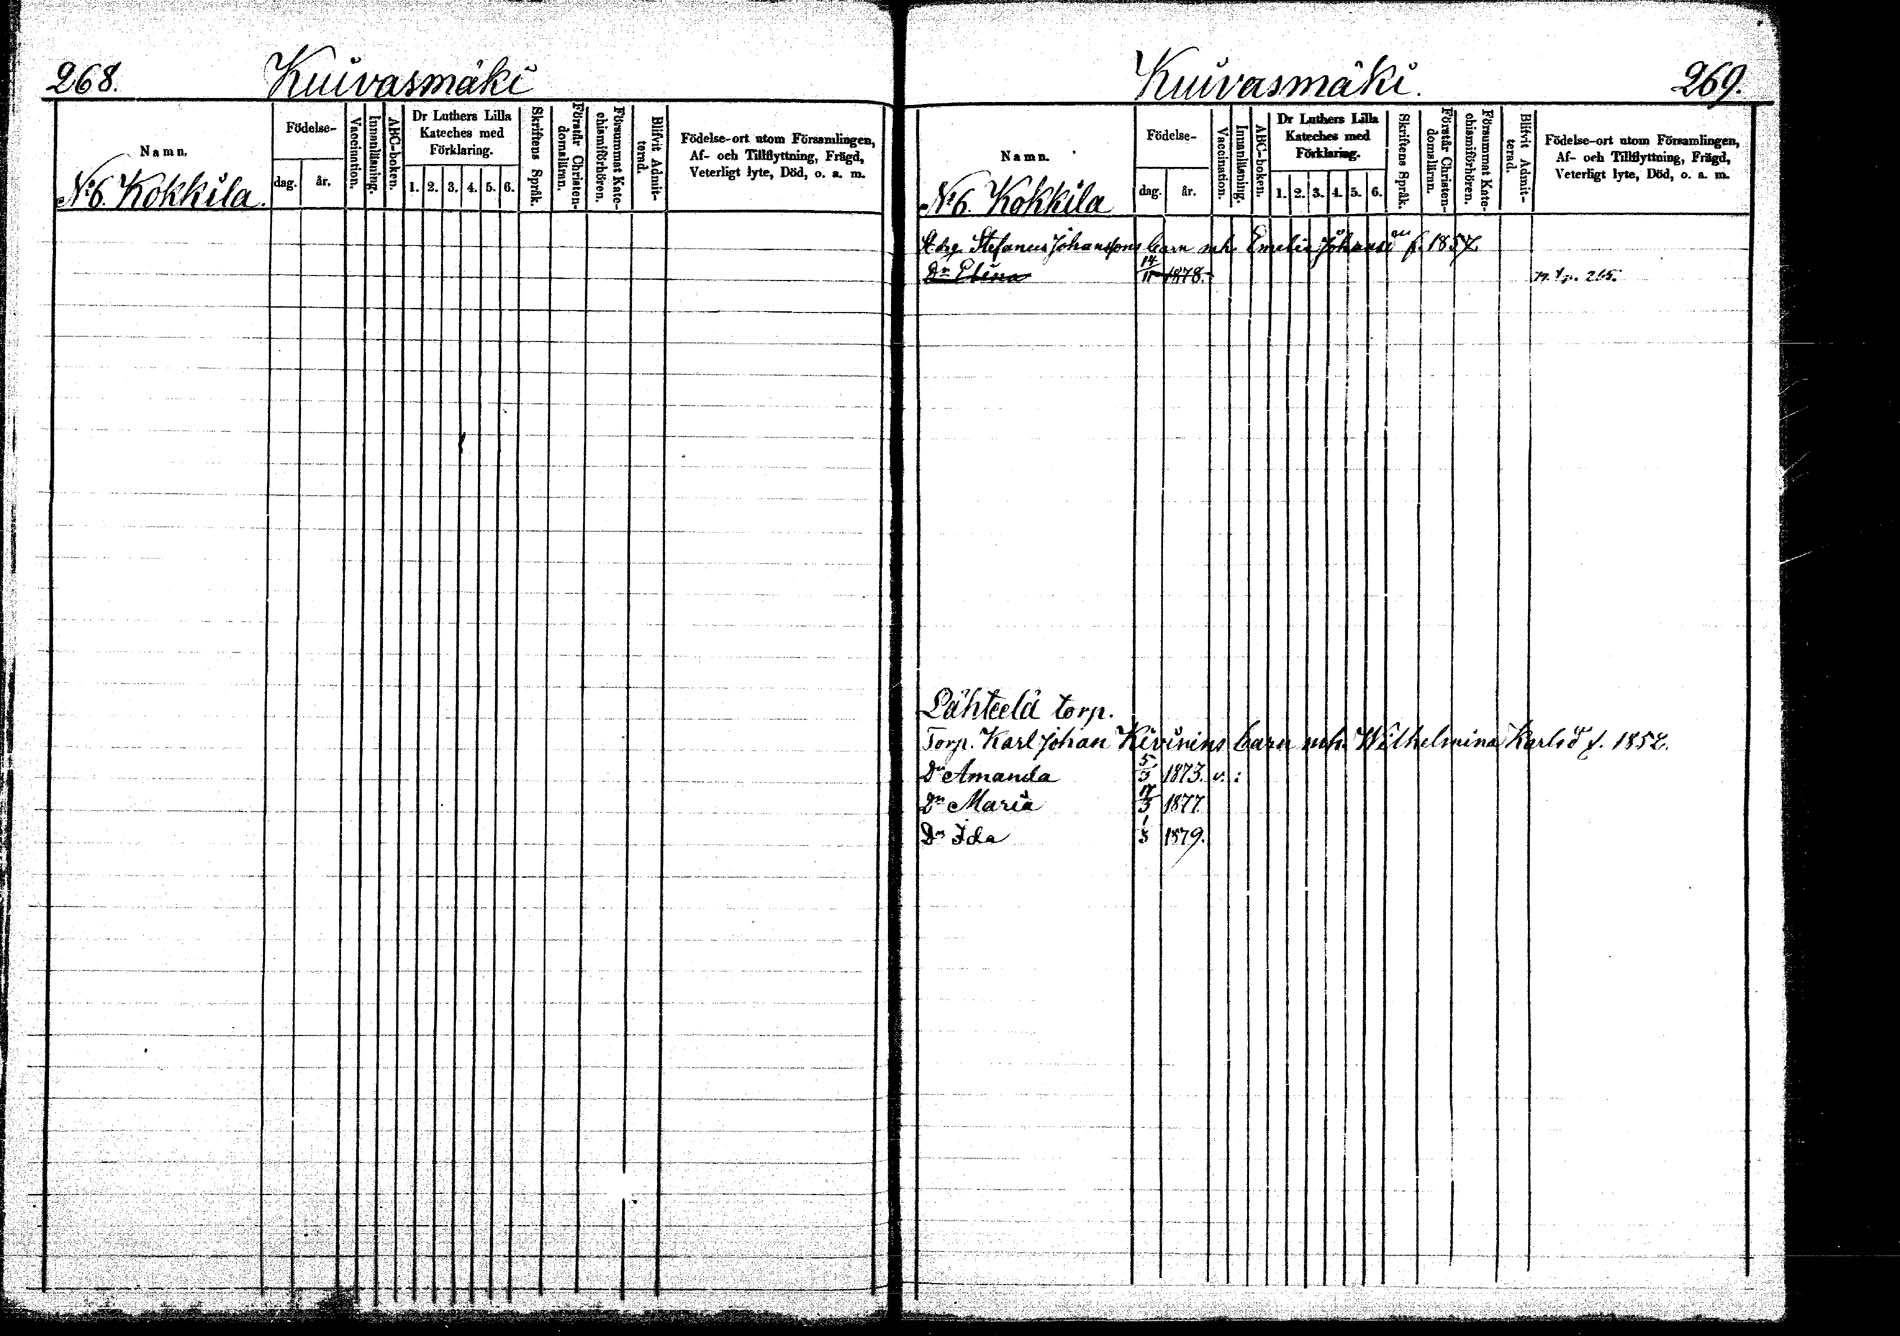 268.
Kuivasmäki
Namn.
Födelse-
dag.
år.
Vaccination.
Innanläsning.
ABC-boken.
Dr Luthers Lilla
Kateches med
Förklaring.
1. 2. 3. 4. 5. 6.
Skriftens Språk.
Förstår Christen-
domsläran.
Försummat Kate-
chismiförhören.
Blifvit Admit-
terad.
Födelse-ort utom Församlingen,
Af- och Tillflyttning, Frägd,
Veterligt lyte, Död, o. a. m.
No 6. Kokkila.
Kuivasmäki.
269.
Namn.
Födelse-
dag.
år.
Vaccination.
Innanläsning.
ABC-boken.
Dr Luthers Lilla
Kateches med
Förklaring.
1. 2. 3. 4. 5. 6.
Skriftens Språk.
Förstår Christen-
domsläran.
Försummat Kate-
chismiförhören.
Blifvit Admit-
terad.
Födelse-ort utom Församlingen,
Af- och Tillflyttning, Frägd,
Veterligt lyte, Död, o. a. m.
No 6. Kokkila
Stefanus Johanssons barn mh. Emelia f. 1857.
Dr Elina 14/11 1878. 265.
Lähteelä torp.
Torp. Karl Johan Kivinins barn mh. Wilhelmina Karlsdr f. 1852.
Dr Amanda 5/3 1873. v. :
Dr Maria 17/3 1877
Dr Ida 1/3 1879.